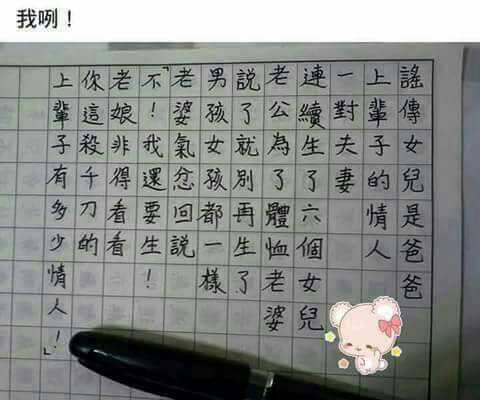 我咧！
謠傳女兒是爸爸
上輩子的情人
一對夫妻
連續生了六個女兒
老公為了體恤老婆
說了就別再生了
男孩女孩都一樣
老婆氣忿回說
「不！我還要生！
老娘非得看看
你這殺千刀的
上輩子有多少情人！」